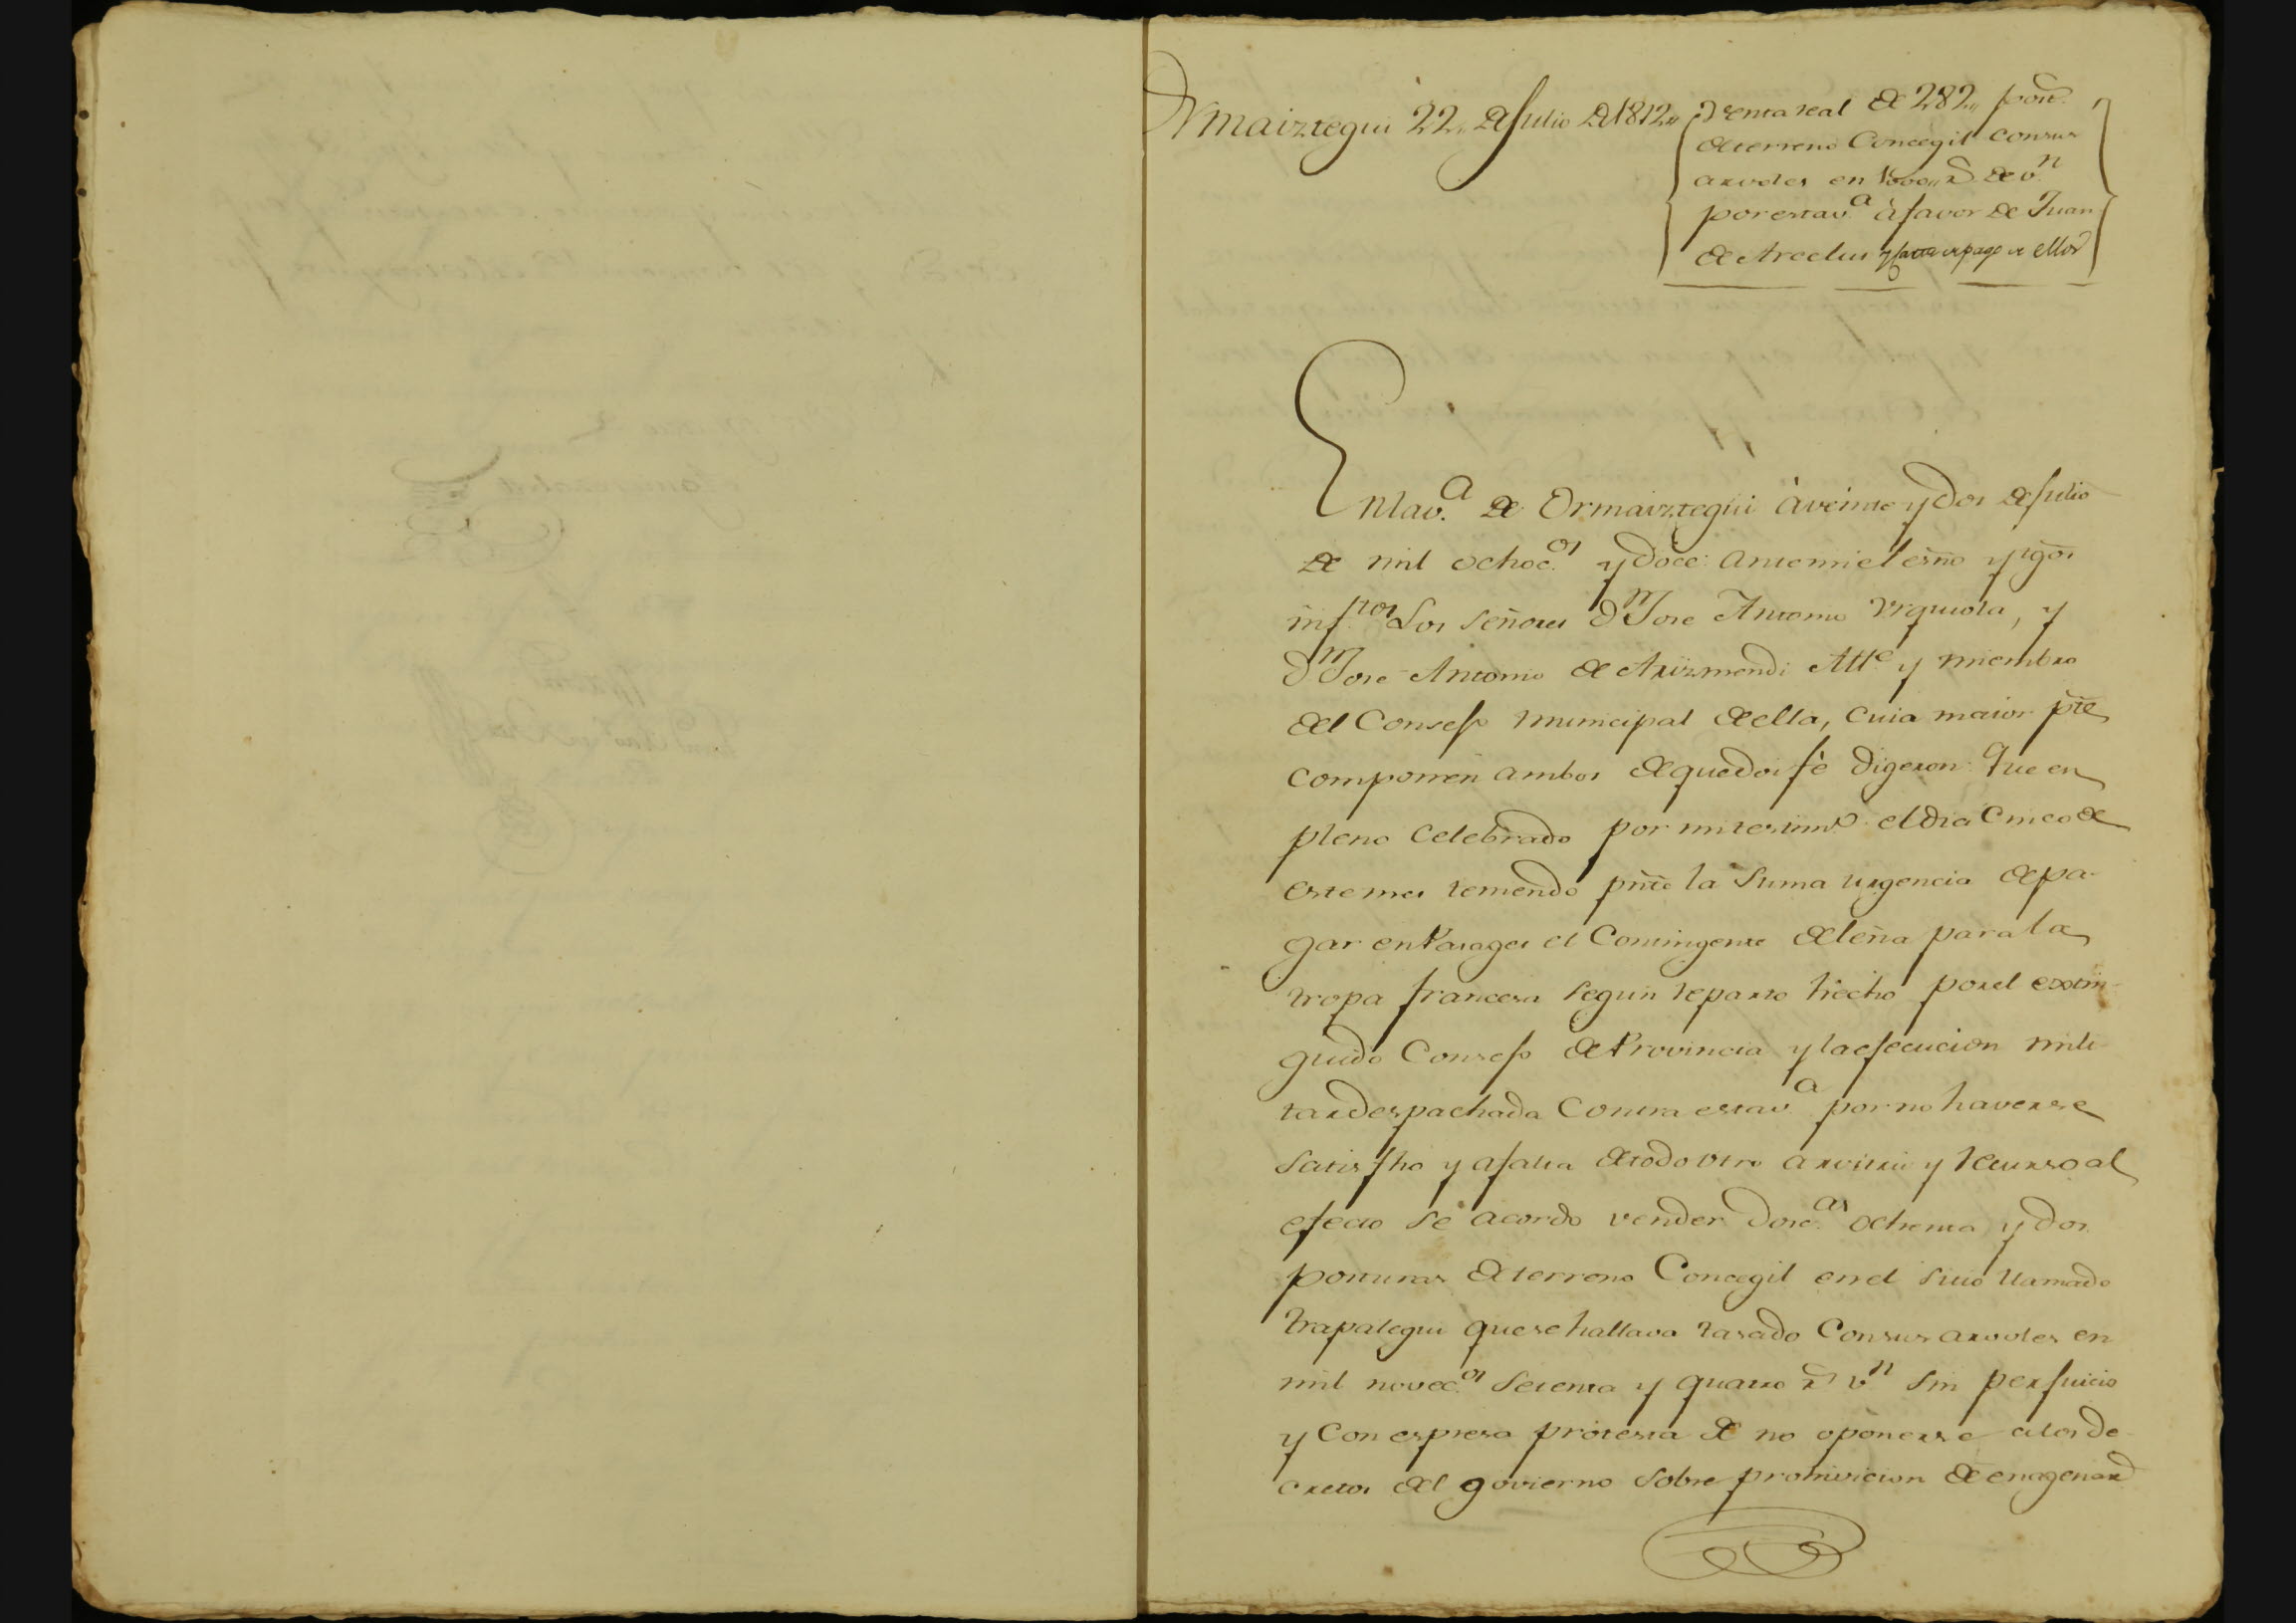 Ormaiztegui 22,, de Julio de 1812,,
Venta real de 282,, post.s
de terreno Concegil con sus
arvoles en r.s de v.n
por esta v.a à favor de Juan
de Arcelus y carta de pago de ellos
En la v.a de Ormaiztegui à veinte y dos de Julio
de mil ochoc.os y doce: ante mi el esño y tgõs
inf.tos Los señores D.n Jose Antonio Urquiola, y
D.n Jose Antonio de Arizmendi Att.e y miembro
del Consejo municipal de ella, cuia maior pte
componen ambos de que doi fè digeron: Que en
pleno celebrado por mi testim.o el dia Cinco de
este mes teniendo pñte la suma urgencia de pa-
gar en Pasages el Contingente de leña para la
tropa francesa segun reparto hecho por el extin-
guido Consejo de Provincia y la ejecucion mili-
tar despachada contra esta v.a por no haverse
satisfho y a falta de todo otro arvitrio y recurso al
efecto se acordo vender dosc.as ochenta y dos
posturas de terreno Concegil en el sitio llamado
Trapategui que se hallava tasado con sus arvoles en
mil novec.os setenta y quatro r.s v.n sin perjuicio
y con espresa protesta de no oponerse a los de-
cretos del govierno sobre proivicion de enagenar